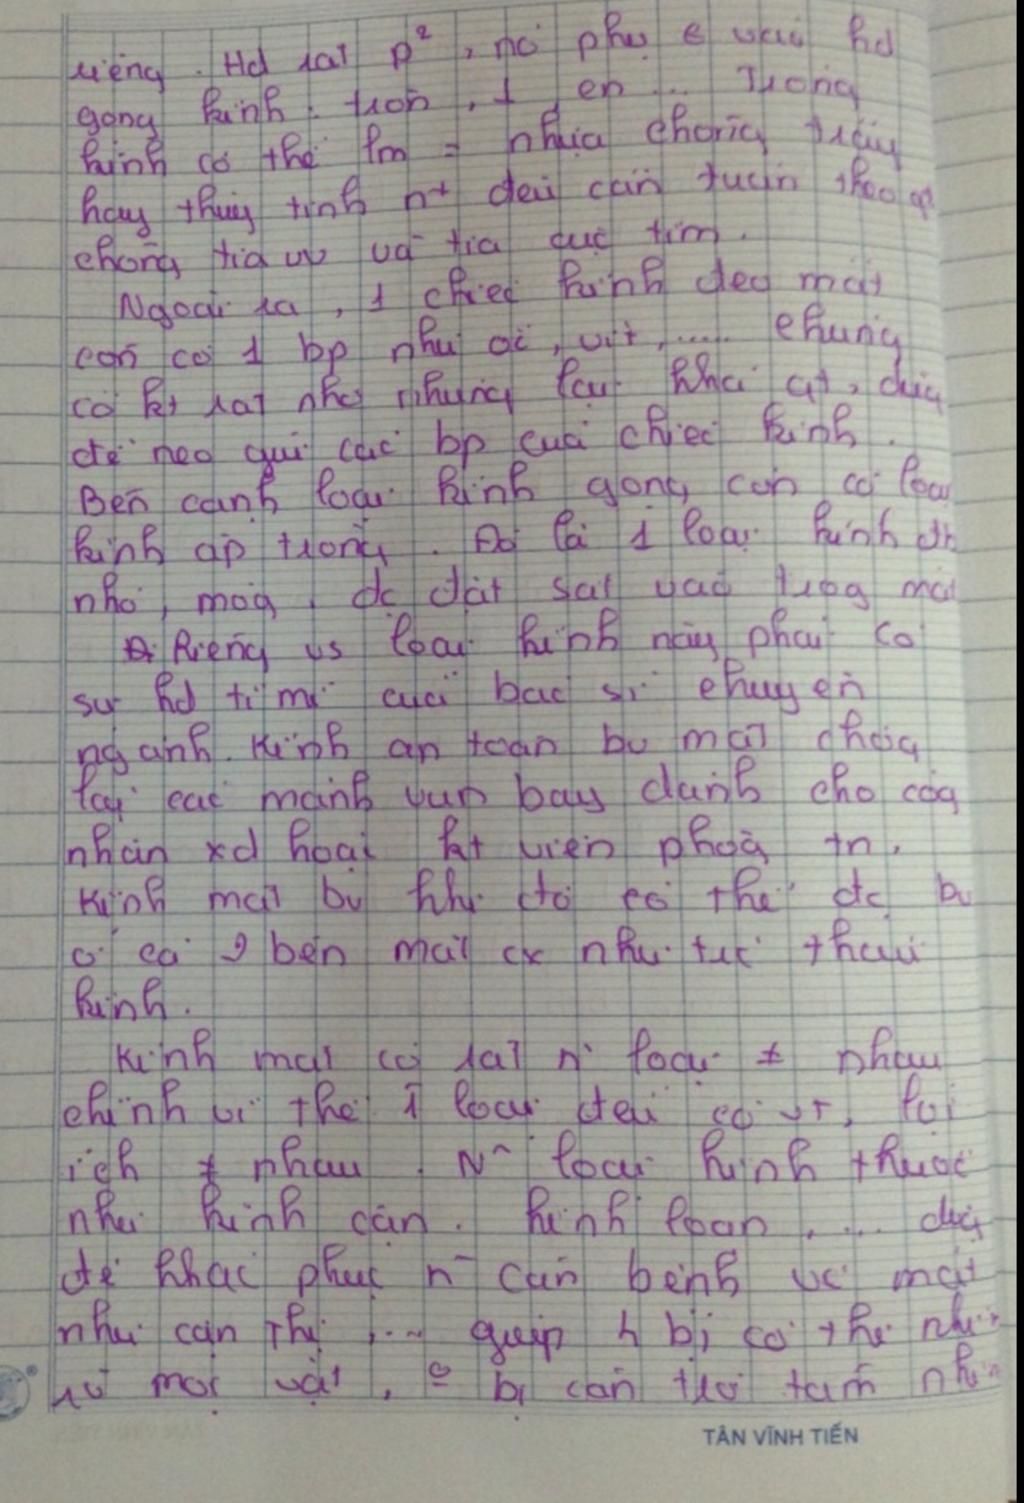 riêng. Hd rất p², nó phụ vào hd
gọng kính: tròn, 1 en... Trong
kính có thể lm = nhựa chống trầy
hay thủy tinh n+ đều cần tuân theo
chống tia uv và tia cực tím.
Ngoài ra, 1 chiếc kính đeo mắt
còn có 1 bp như ốc, vít, .... chúng
có kt rất nhỏ nhưng lại khá qt, dùg
để neo giữ các bp của chiếc kính.
Bên cạnh loại kính gọng còn có loại
kính áp tròng. Đó là 1 loại kính
nhỏ, mỏg, đc đặt sát vào trog mắt
Riêng vs loại kính này phải có
sự hd tỉ mỉ của bác sĩ chuyên
ngành. Kính an toàn bv mắt chốg
lại các mảnh vụn bay dành cho côg
nhân xd hoặc kt viên phòg tn.
Kính mắt bv khi đó có thể đc bv
ở cả 2 bên mắt cx như trc thấu
kính.
Kính mắt có rất n` loại ≠ nhau
chính vì thế 1 loại đều có vt, lợi
ích ≠ nhau. N~ loại kính thuốc
như kính cận. kính loạn, ... dùg
để khắc phục n~ căn bệnh về mắt
như cận thị, ... giúp h bị có thể nhìn
rõ mọi vật, bị cản trở tầm nhìn
TÂN VĨNH TIẾN